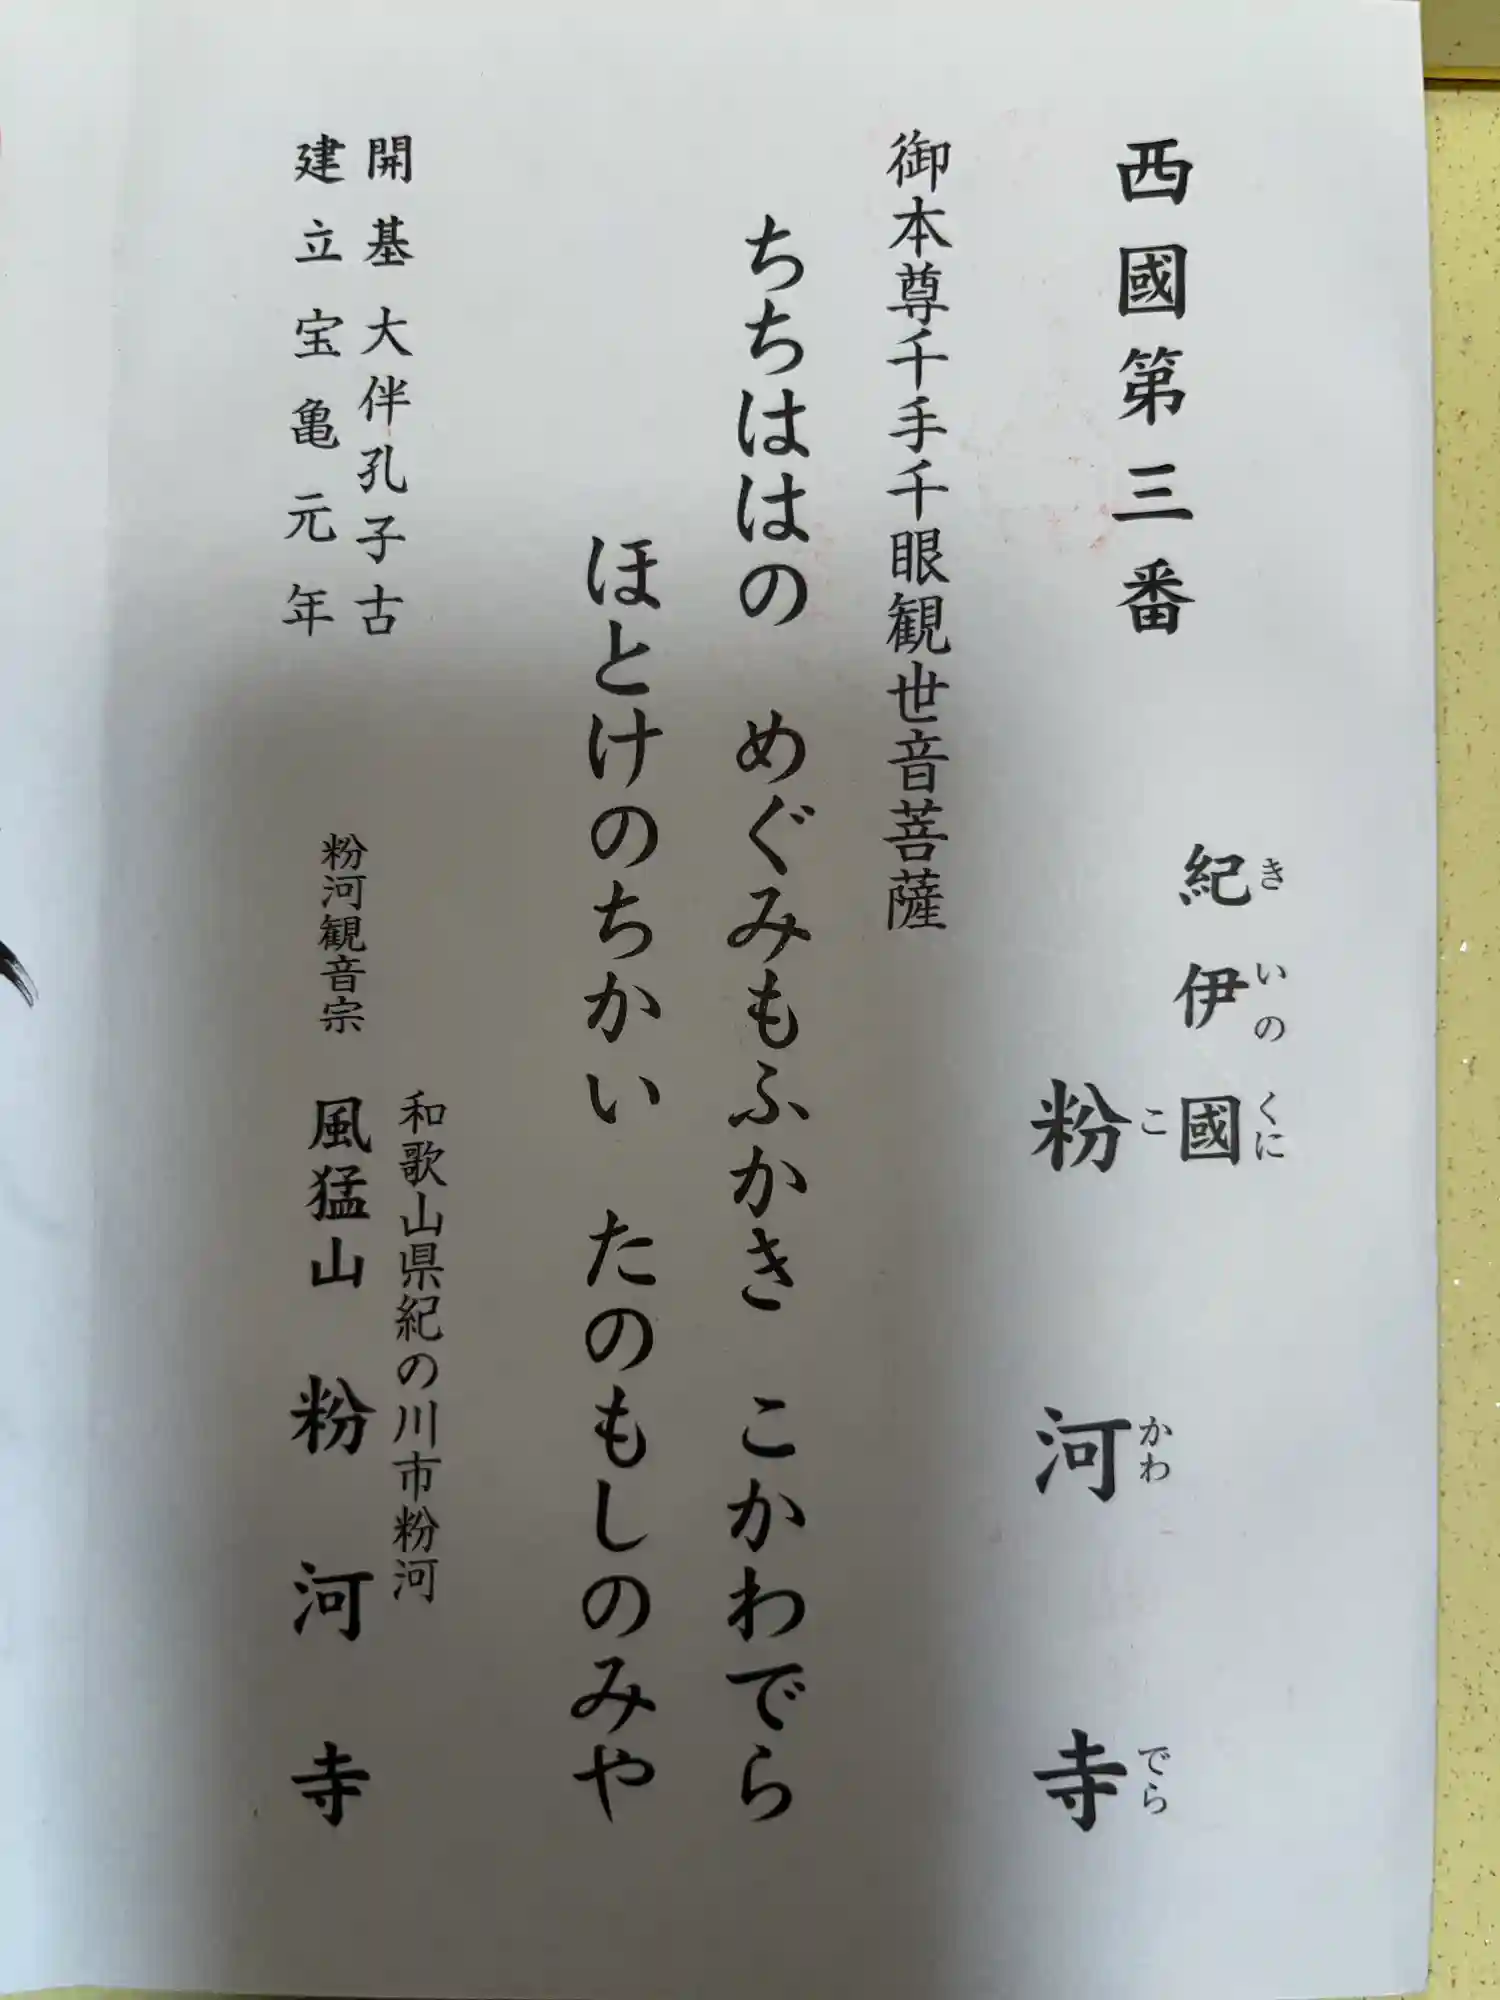 西國第三番
紀伊國
きいのくに
粉河寺
こかわでら
御本尊千手千眼観世音菩薩
ちちははの めぐみもふかき こかわでら
ほとけのちかい たのもしのみや
開基 大伴孔子古
建立 宝亀元年
和歌山県紀の川市粉河
粉河観音宗 風猛山 粉河寺